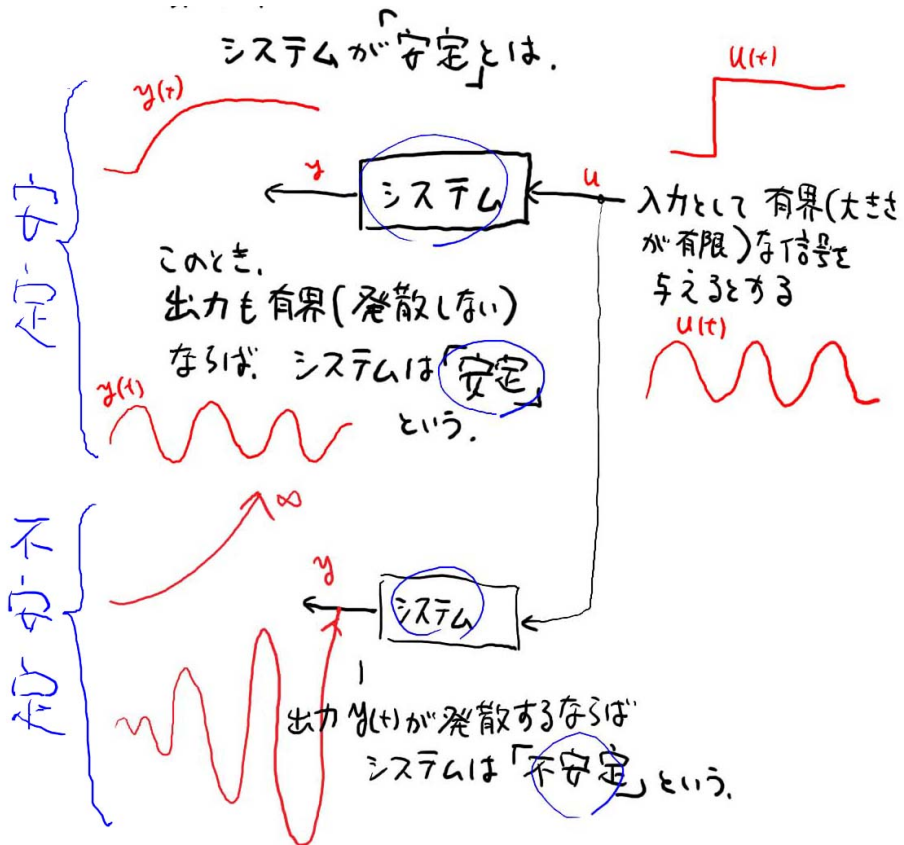 システムが「安定」とは.
y(t)
u(t)
y
システム
u
入力として 有界(大きさ
が有限)な信号を
与えるとする
u(t)
このとき.
出力も有界(発散しない)
ならば. システムは「安定」
という.
y(t)
安定
∞
y
システム
不安定
出力 y(t)が発散するならば
システムは「不安定」という.